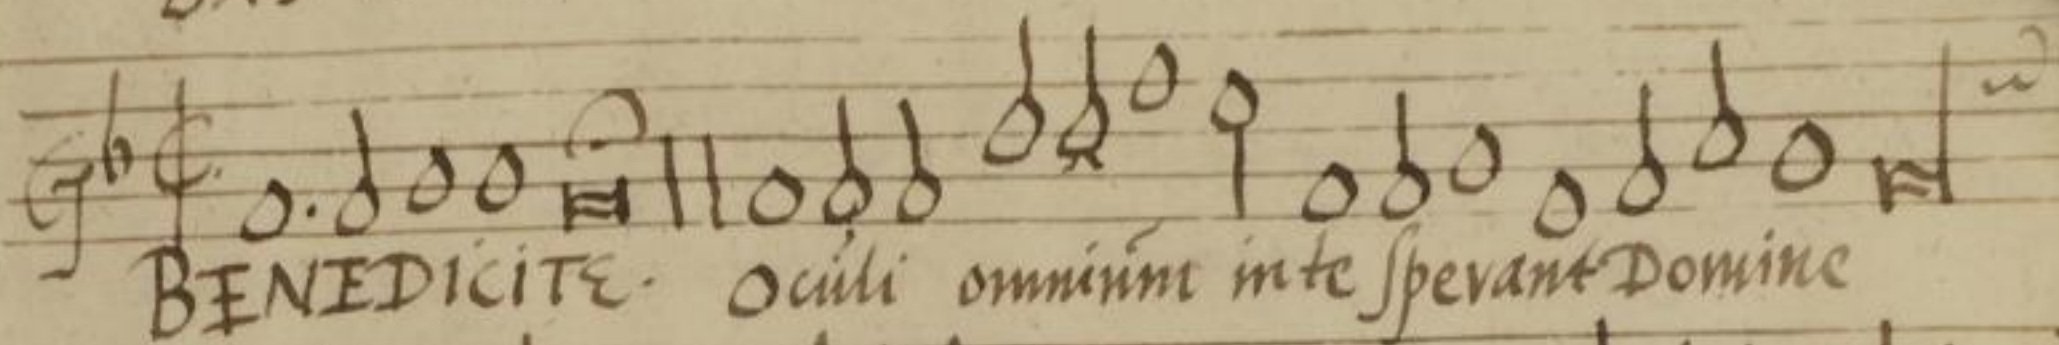 BENEDICITE. Oculi omnium in te sperant Domine